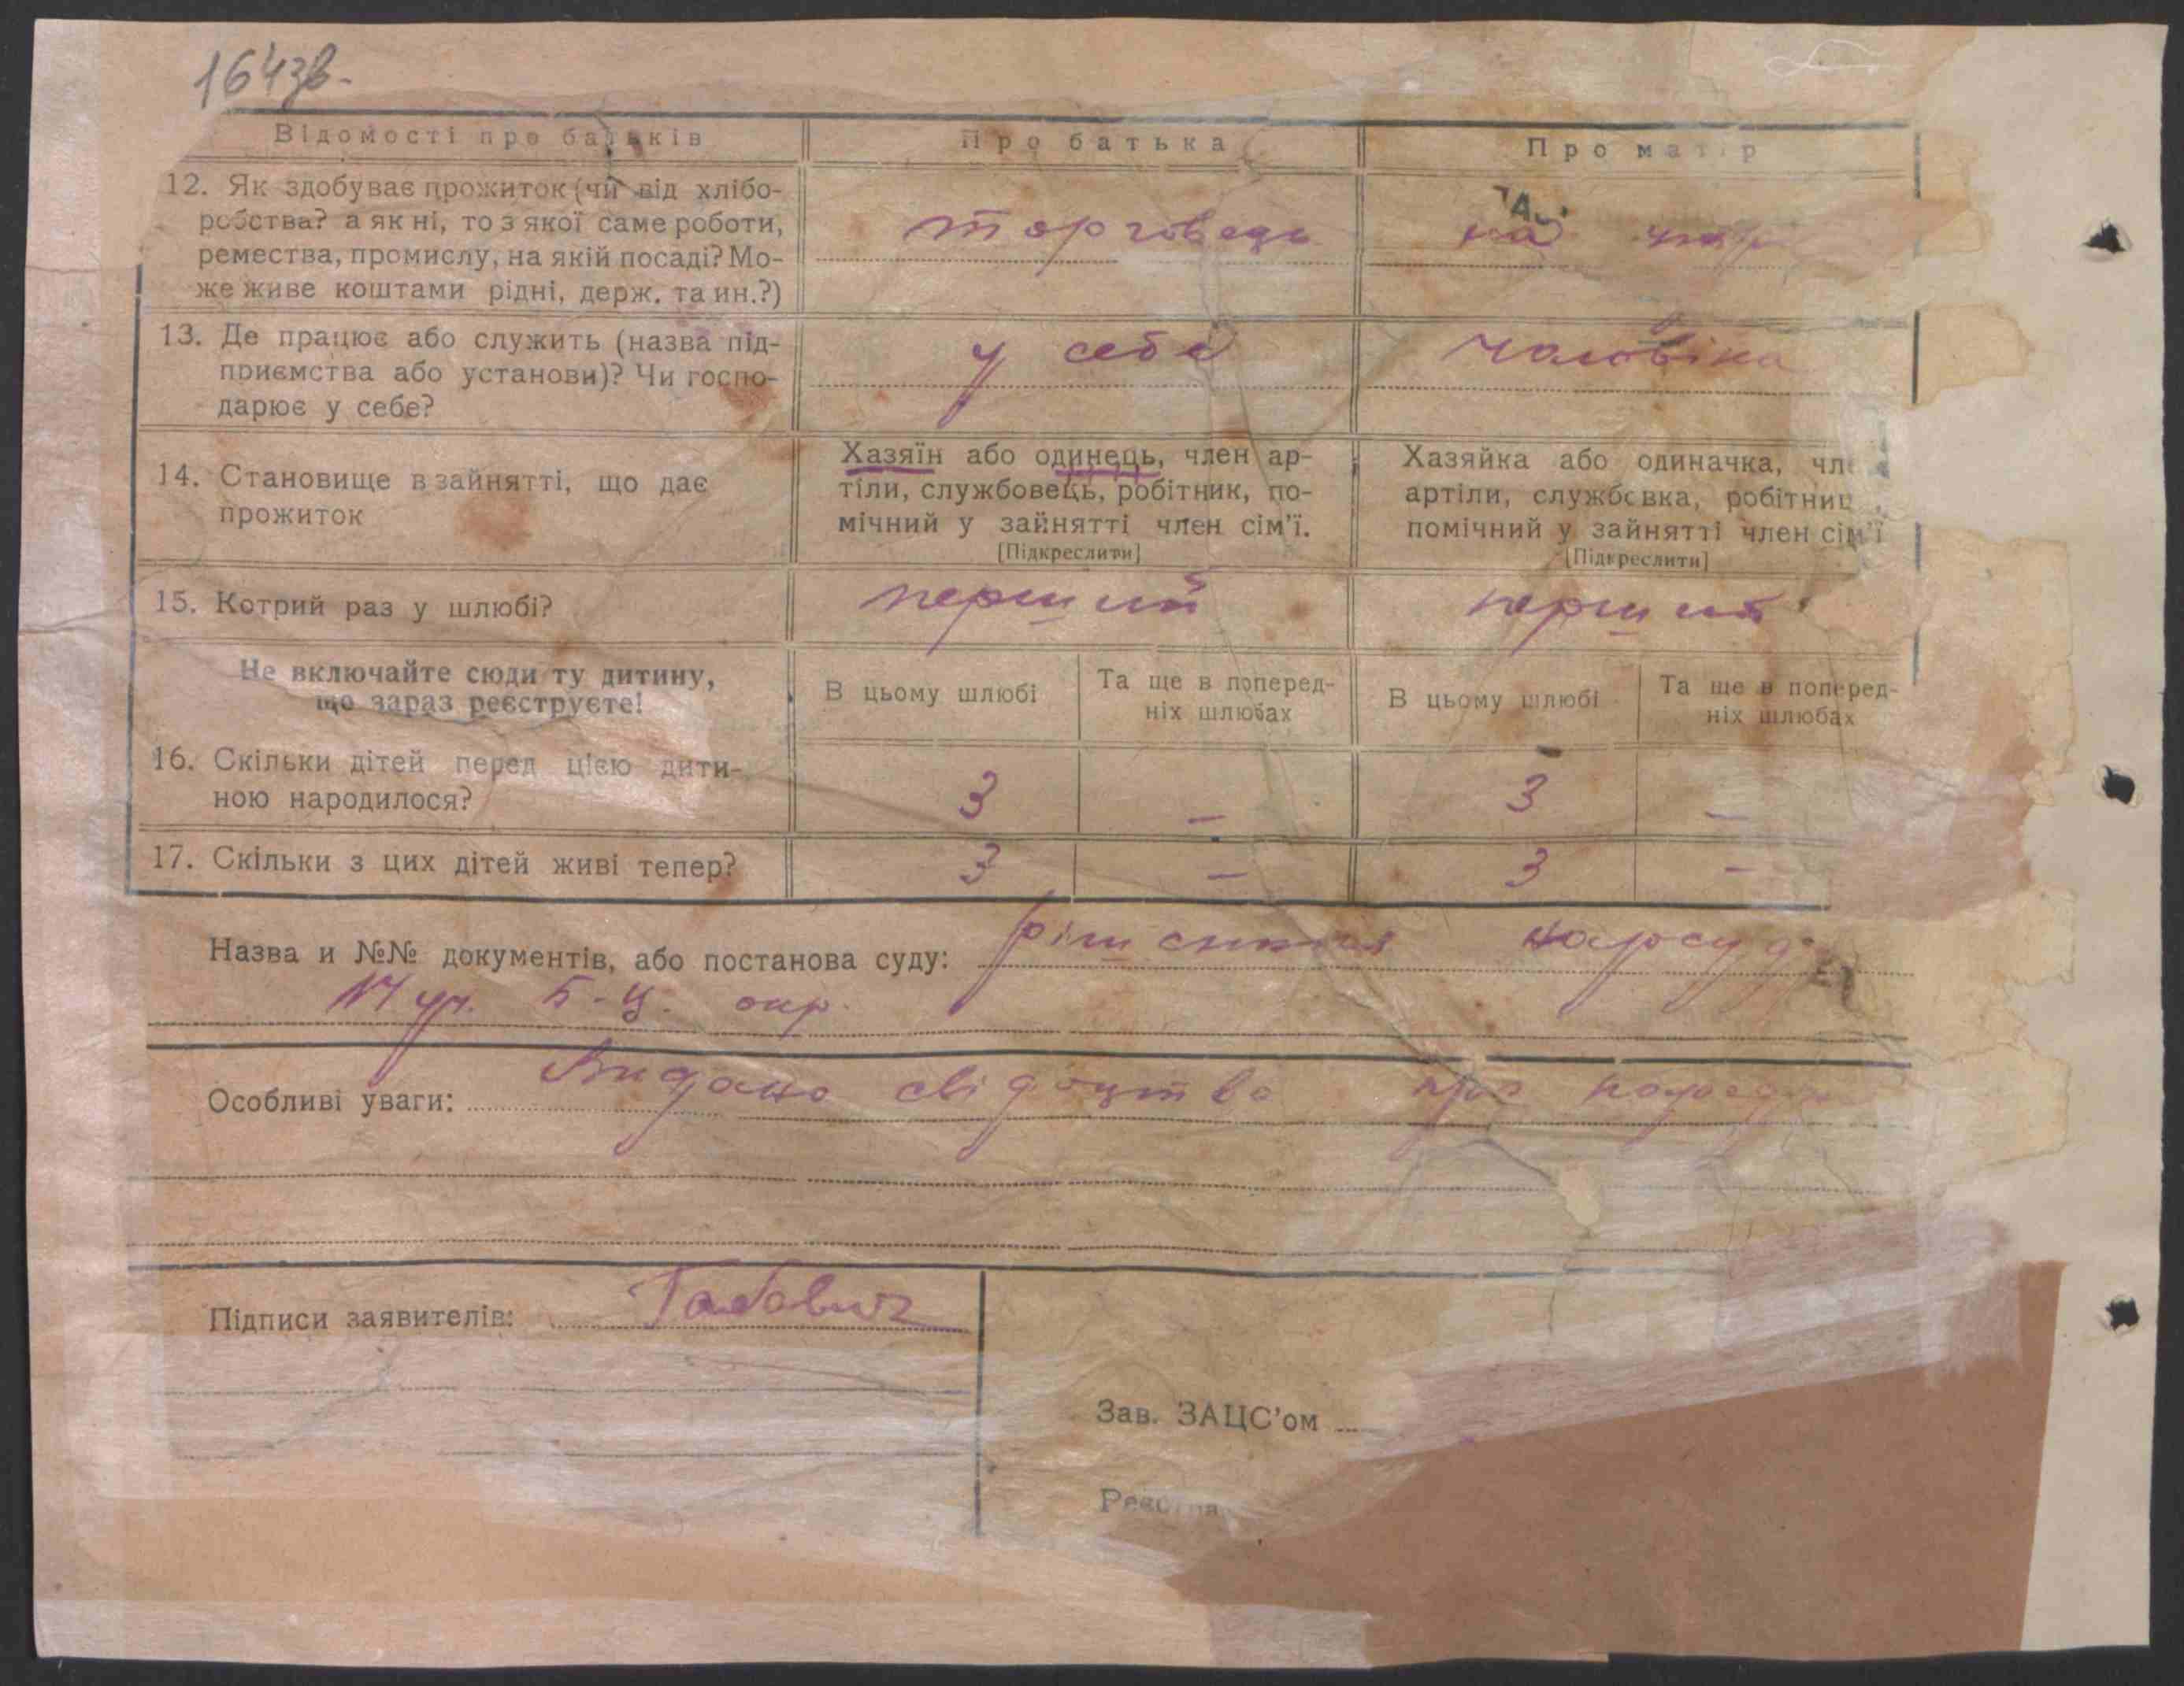 164зв.
Відомості про батьків
Про батька
Про матір
12. Як здобуває прожиток (чи від хлібо-
робства? а як ні, то з якої саме роботи,
ремества, промислу, на якій посаді? Мо-
же живе коштами рідні, держ. та ин.?)
торговець
на
13. Де працює або служить (назва під-
приємства або установи)? Чи госпо-
дарює у себе?
у себе
чоловіка
14. Становище в зайнятті, що дає
прожиток
Хазяїн або одинець, член ар-
тіли, службовець, робітник, по-
мічний у зайнятті член сім'ї.
[Підкреслити]
Хазяйка або одиначка, чл
артіли, службовка, робітниц
помічний у зайнятті член сім'ї
[Підкреслити]
15. Котрий раз у шлюбі?
перший
перший
Не включайте сюди ту дитину,
що зараз реєструєте!
В цьому шлюбі
Та ще в поперед-
ніх шлюбах
В цьому шлюбі
Та ще в поперед-
ніх шлюбах
16. Скільки дітей перед цією дити-
ною народилося?
3
–
3
–
17. Скільки з цих дітей живі тепер?
3
–
3
–
Назва и №№ документів, або постанова суду: рішення нарсуд
Б-Ц. окр.
Особливі уваги: Видано свідоцтво про народ
Підписи заявителів:
Зав. ЗАЦС'ом
Реєстра